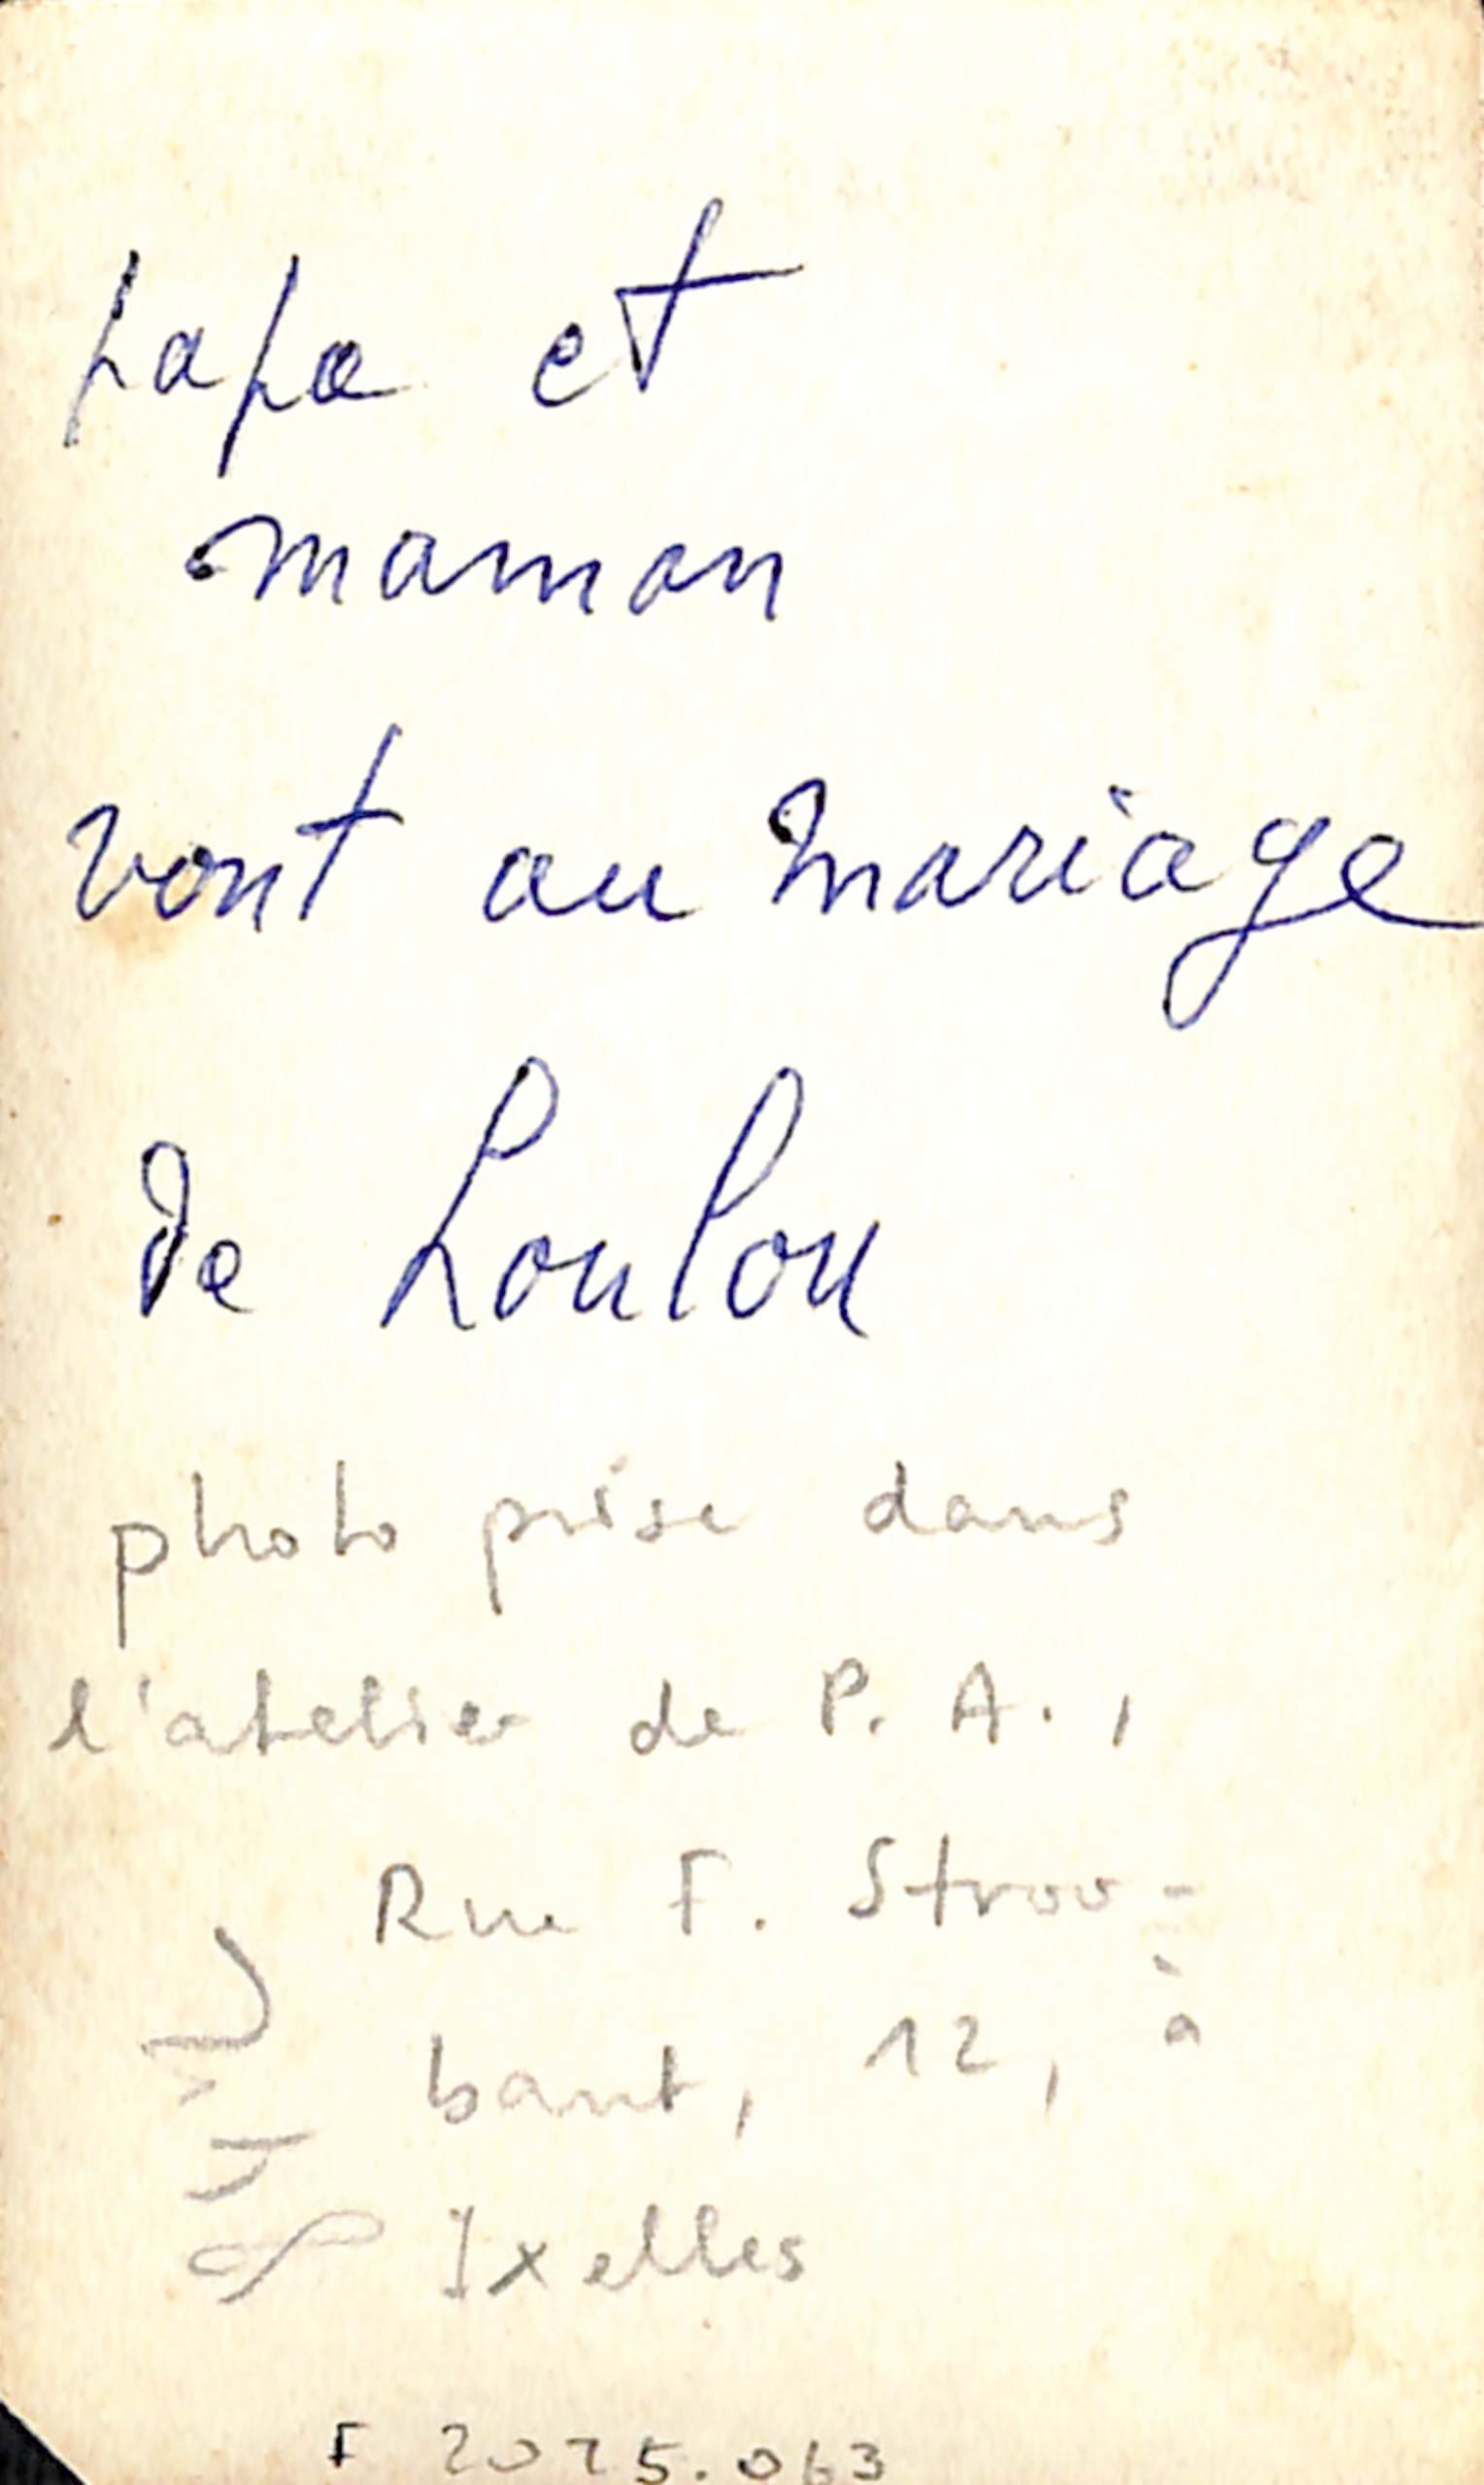 papa et
maman
vont au mariage
de Loulou
photo prise dans
l'atelier de P. A.,
Rue F. Stroo-
bant, 12, à
Ixelles
F 2025.063